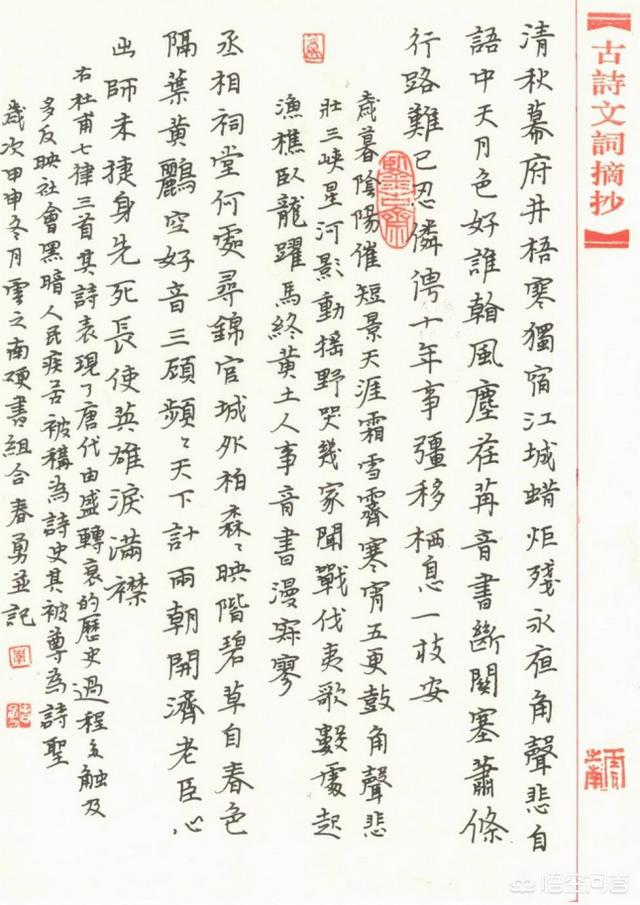 【古詩文詞摘抄】
清秋幕府井梧寒獨宿江城蜡炬殘永夜角聲悲自
語中天月色好誰看風塵荏苒音書斷關塞蕭條
行路難已忍憐俜十年事彊移栖息一枝安
歲暮陰陽催短景天涯霜雪霽寒宵五更鼓角聲悲
壯三峽星河影動搖野哭幾家聞戰伐夷歌數處起
漁樵臥龍躍馬終黄土人事音書漫寂寥
丞相祠堂何處尋錦官城外柏森〻映階碧草自春色
隔葉黄鸝空好音三顧頻〻天下計兩朝開濟老臣心
出師未捷身先死長使英雄淚滿襟
右杜甫七律三首其詩表現了唐代由盛轉衰的歷史過程多觸及
多反映社會黑暗人民疾苦被稱為詩史其被尊為詩聖
歲次甲申冬月雲之南硬書組合春勇並記
雲之南
悟空问答